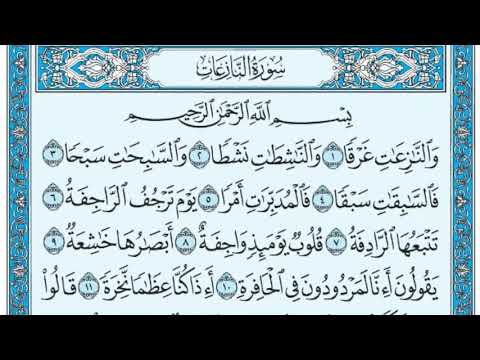 سُورَةُ النَّازِعَاتِ
بِسْمِ اللَّهِ الرَّحْمَٰنِ الرَّحِيمِ
وَالنَّازِعَاتِ غَرْقًا ١ وَالنَّاشِطَاتِ نَشْطًا ٢ وَالسَّابِحَاتِ سَبْحًا ٣
فَالسَّابِقَاتِ سَبْقًا ٤ فَالْمُدَبِّرَاتِ أَمْرًا ٥ يَوْمَ تَرْجُفُ الرَّاجِفَةُ ٦
تَتْبَعُهَا الرَّادِفَةُ ٧ قُلُوبٌ يَوْمَئِذٍ وَاجِفَةٌ ٨ أَبْصَارُهَا خَاشِعَةٌ ٩
يَقُولُونَ أَءِنَّا لَمَرْدُودُونَ فِي الْحَافِرَةِ ١٠ أَءِذَا كُنَّا عِظَامًا نَّخِرَةً ١١ قَالُوا